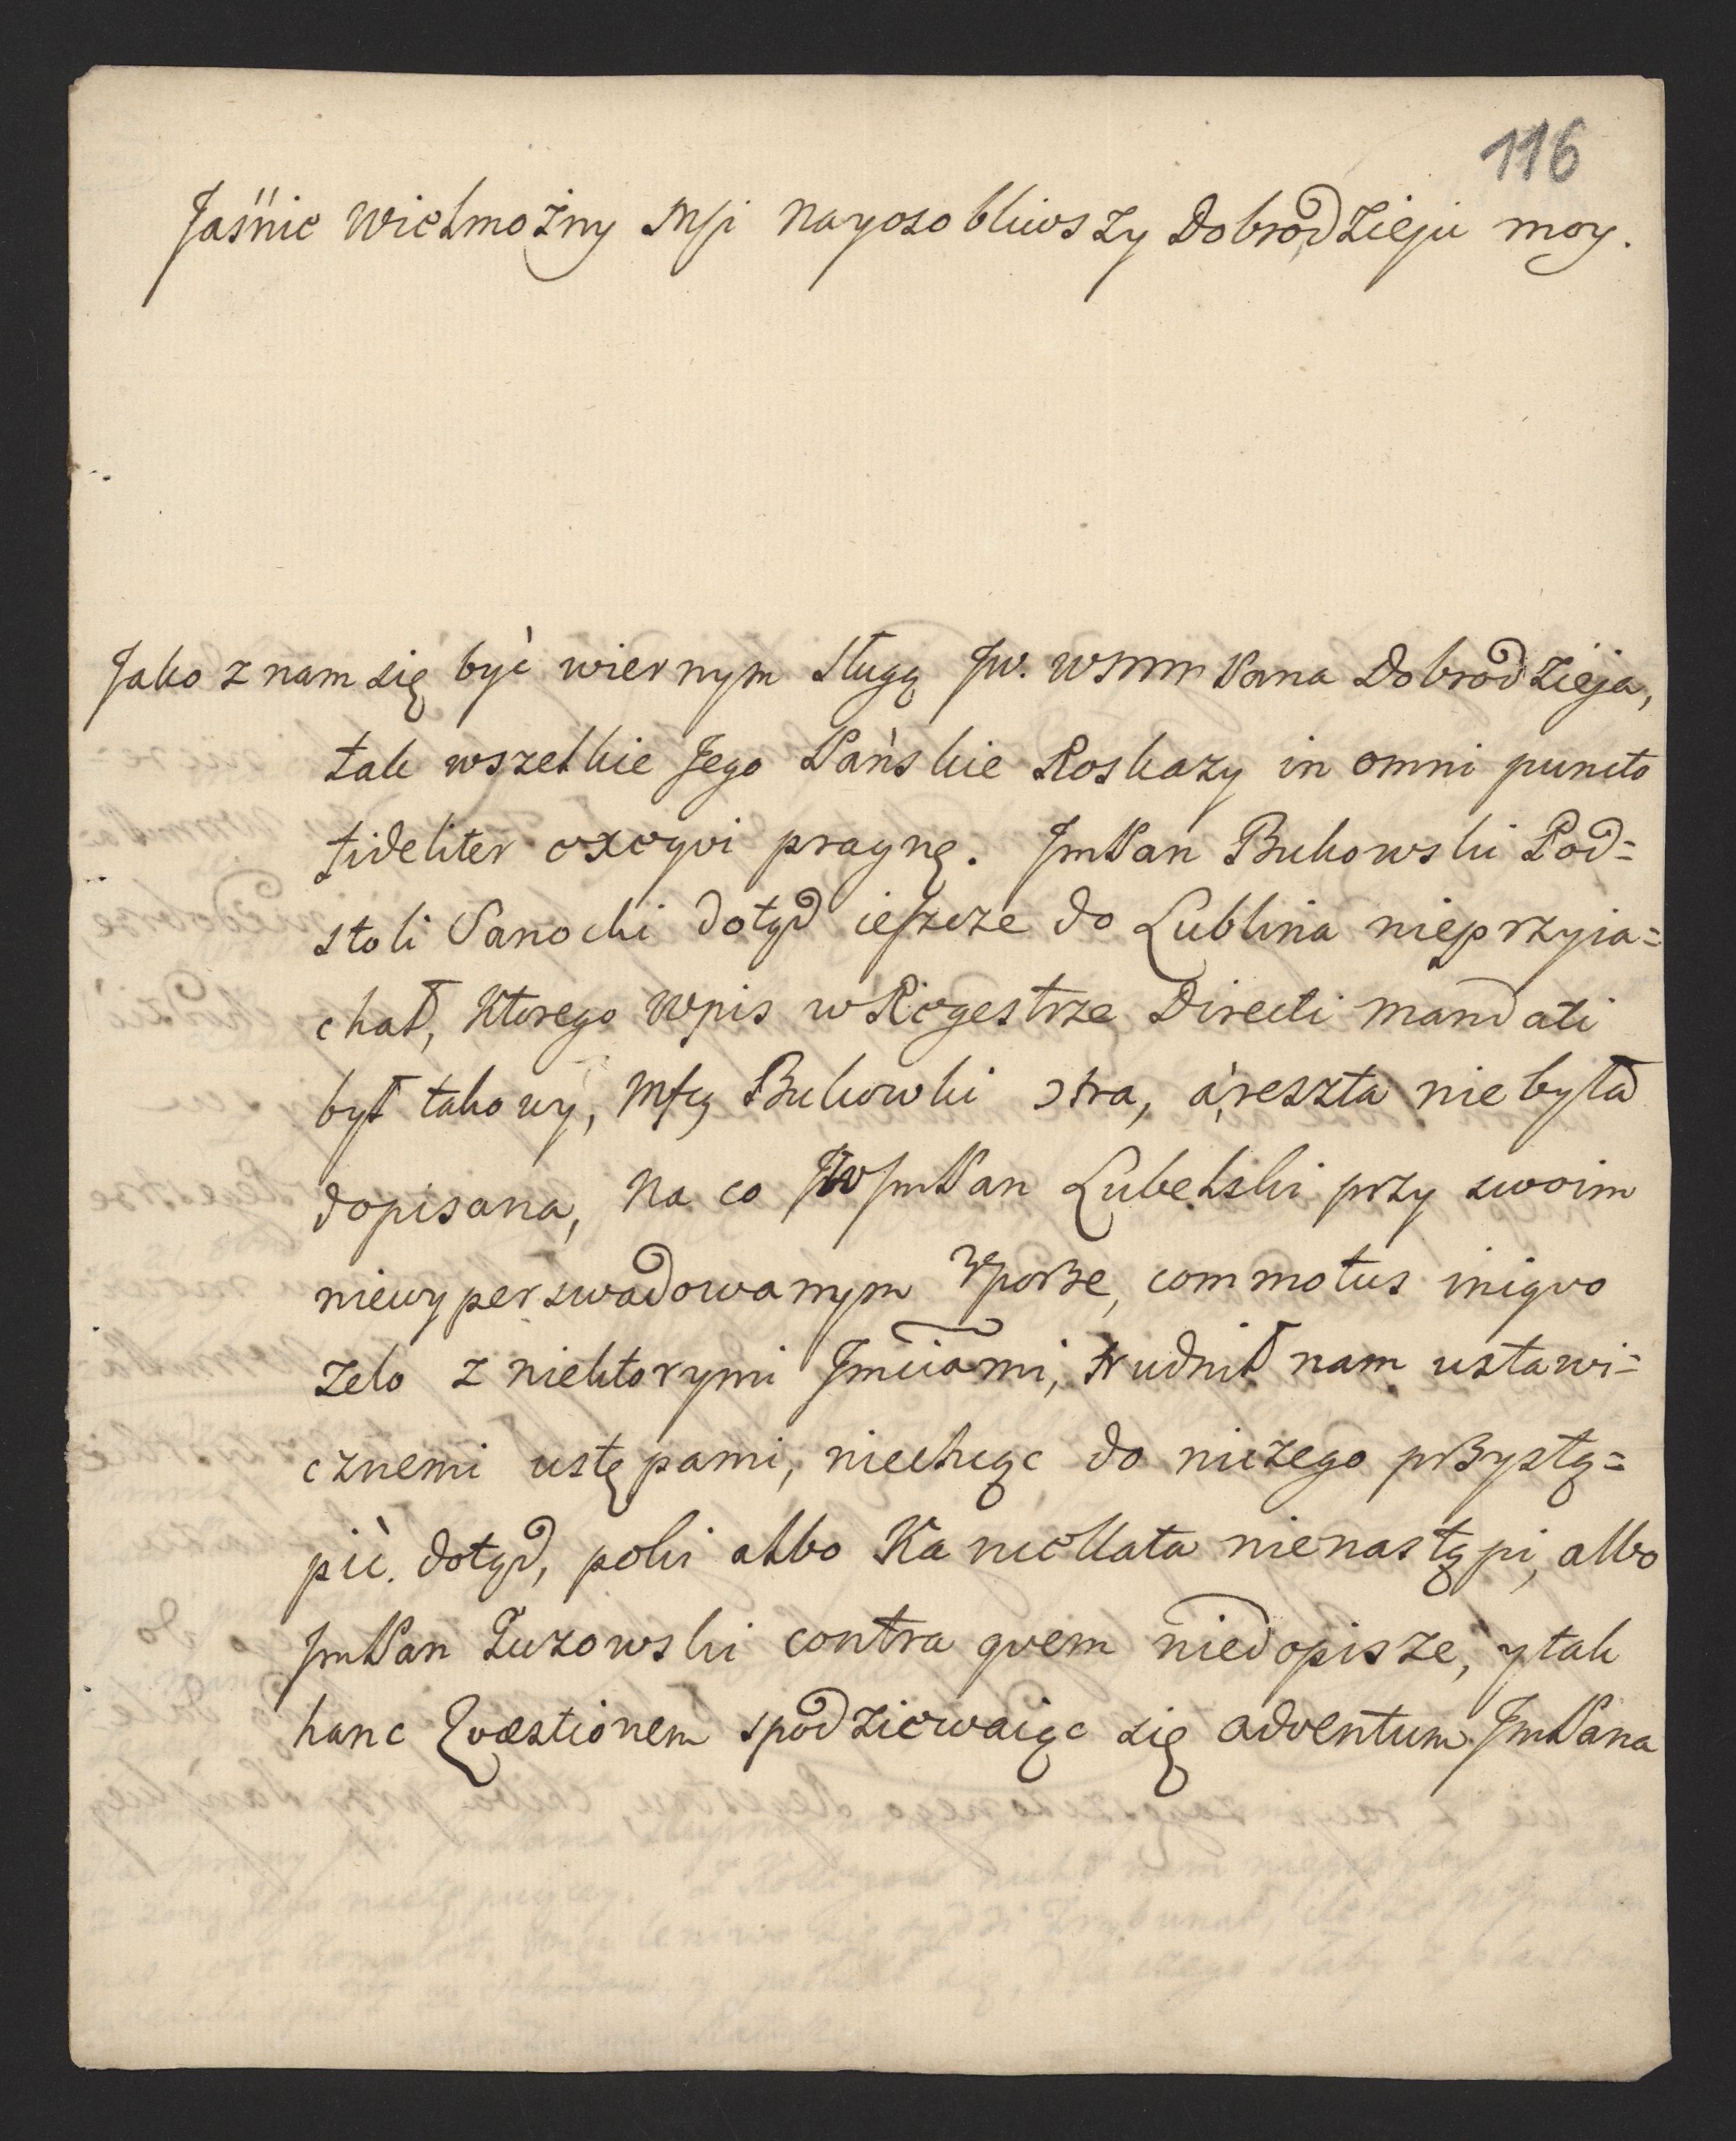 116
Jaśnie Wielmożny Mśi nayosobliwszy Dobrodzieju moy.
Jako znam się być wiernym sługą Jw. WMM Pana Dobrodzieja,
tak wszelkie Jego Pańskie Roskazy in omni puncto
fideliter exeqvi pragnę. JmPan Bukowski Pod=
stoli Sanocki dotąd ieszcze do Lublina nieprzyia=
chał, ktorego wpis w Regestrze Directi mandati
był takowy, Mfcy Bukowski ↄtra, á reszta nie była
dopisana, Na co JWJmPan Lubelski przy swoim
niewyperswadowanym uporze, commotus iniqvo
zelo z niektorymi Jmciami, trudnił nam ustawi=
cznemi ustępami, niechcąc do niczego przystą=
pić. dotąd, poki albo Kancellata nienastąpi, albo
JmPan Łuzowski contra qvem niedopisze, y tak
hanc Qvæstionem spodziewaiąc się adventum JmPana